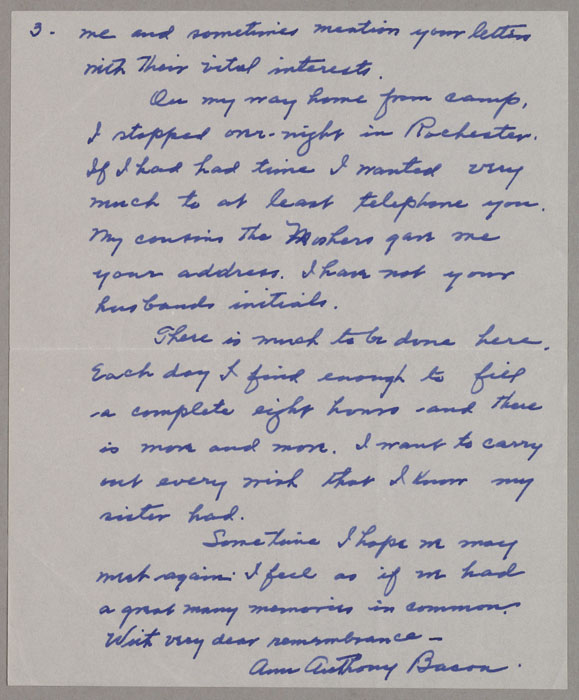 3. me and sometimes mention your letters
with their vital interests.
On my way home from camp,
I stopped over-night in Rochester.
If I had had time I wanted very
much to at least telephone you.
My cousins the Moshers gave me
your address. I have not your
husbands initials.
There is much to be done here.
Each day I find enough to fill
a complete eight hours and there
is more and more. I want to carry
out every wish that I know my
sister had.
Sometime I hope we may
meet again. I feel as if we had
a great many memories in common.
With very dear remembrance -
Ann Anthony Bacon.